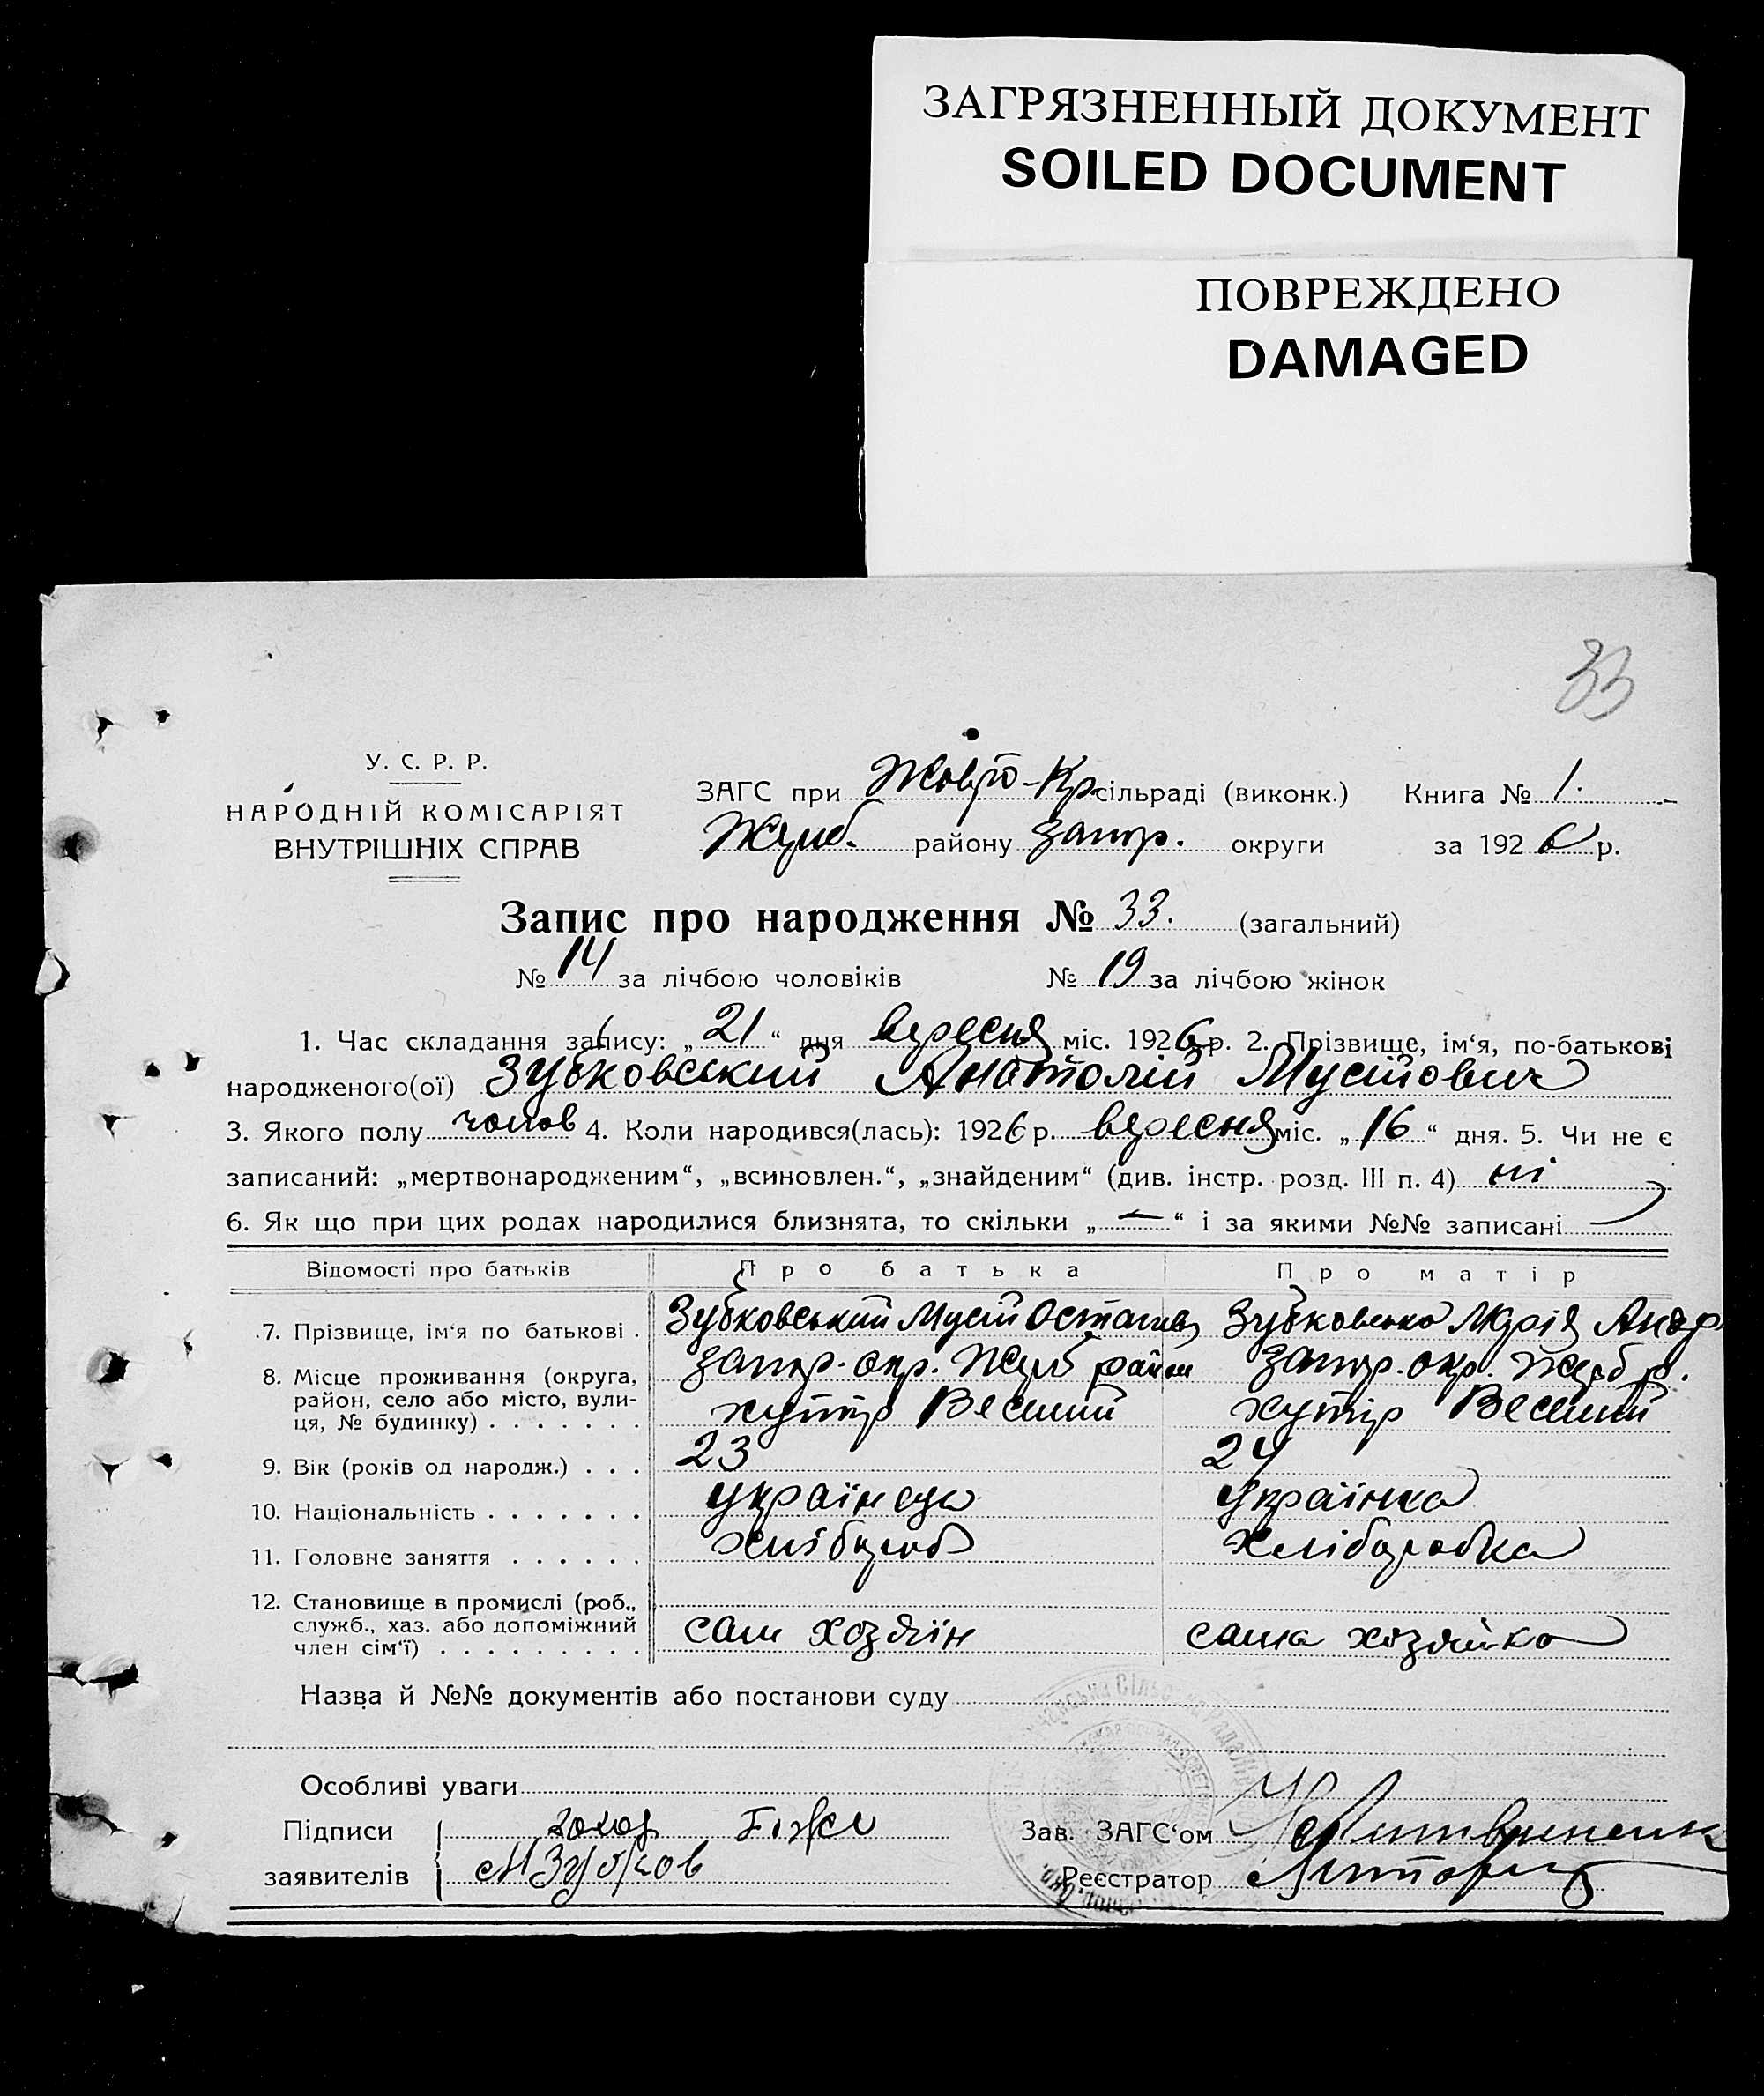 ЗАГРЯЗНЕННЫЙ ДОКУМЕНТ
SOILED DOCUMENT
ПОВРЕЖДЕНО
DAMAGED
33
У. С. Р. Р.
НАРОДНІЙ КОМІСАРІЯТ
ВНУТРІШНІХ СПРАВ
ЗАГС при Жовто-Кр. сільраді (виконк.) Книга № 1.
району Запор. округи за 1926 р.
Запис про народження № 33. (загальний)
№ 14 за лічбою чоловіків № 19 за лічбою жінок
1. Час складання запису: „21“ дня вересня міс. 1926 р. 2. Прізвище, ім‘я, по-батькові
народженого(ої) Зубковський Анатолій Мусійович
3. Якого полу чолов 4. Коли народився(лась): 1926 р. вересня міс. „16“ дня. 5. Чи не є
записаний: „мертвонародженим“, „всиновлен.“, „знайденим“ (див. інстр. розд. III п. 4) ні
6. Як що при цих родах народилися близнята, то скільки „—“ і за якими №№ записані
Відомості про батьків Про батька Про матір
7. Прізвище, ім‘я по батькові . Зубковський Мусій Остапів Зубковська Марія Андр
8. Місце проживання (округа, Запор. окр. район Запор. окр. р.
район, село або місто, вули-
ця, № будинку) . . . . . . . хутір Веселий хутір Веселий
9. Вік (років од народж.) . . . 23 24
10. Національність . . . . . . . українець українка
11. Головне заняття . . . . . . хлібороб хліборобка
12. Становище в промислі (роб.,
служб., хаз. або допоміжний
член сім‘ї) . . . . . . . . . сам хозяїн сама хозяйка
Назва й №№ документів або постанови суду
Особливі уваги
Підписи Зав. ЗАГС‘ом
заявителів МЗубков Реєстратор